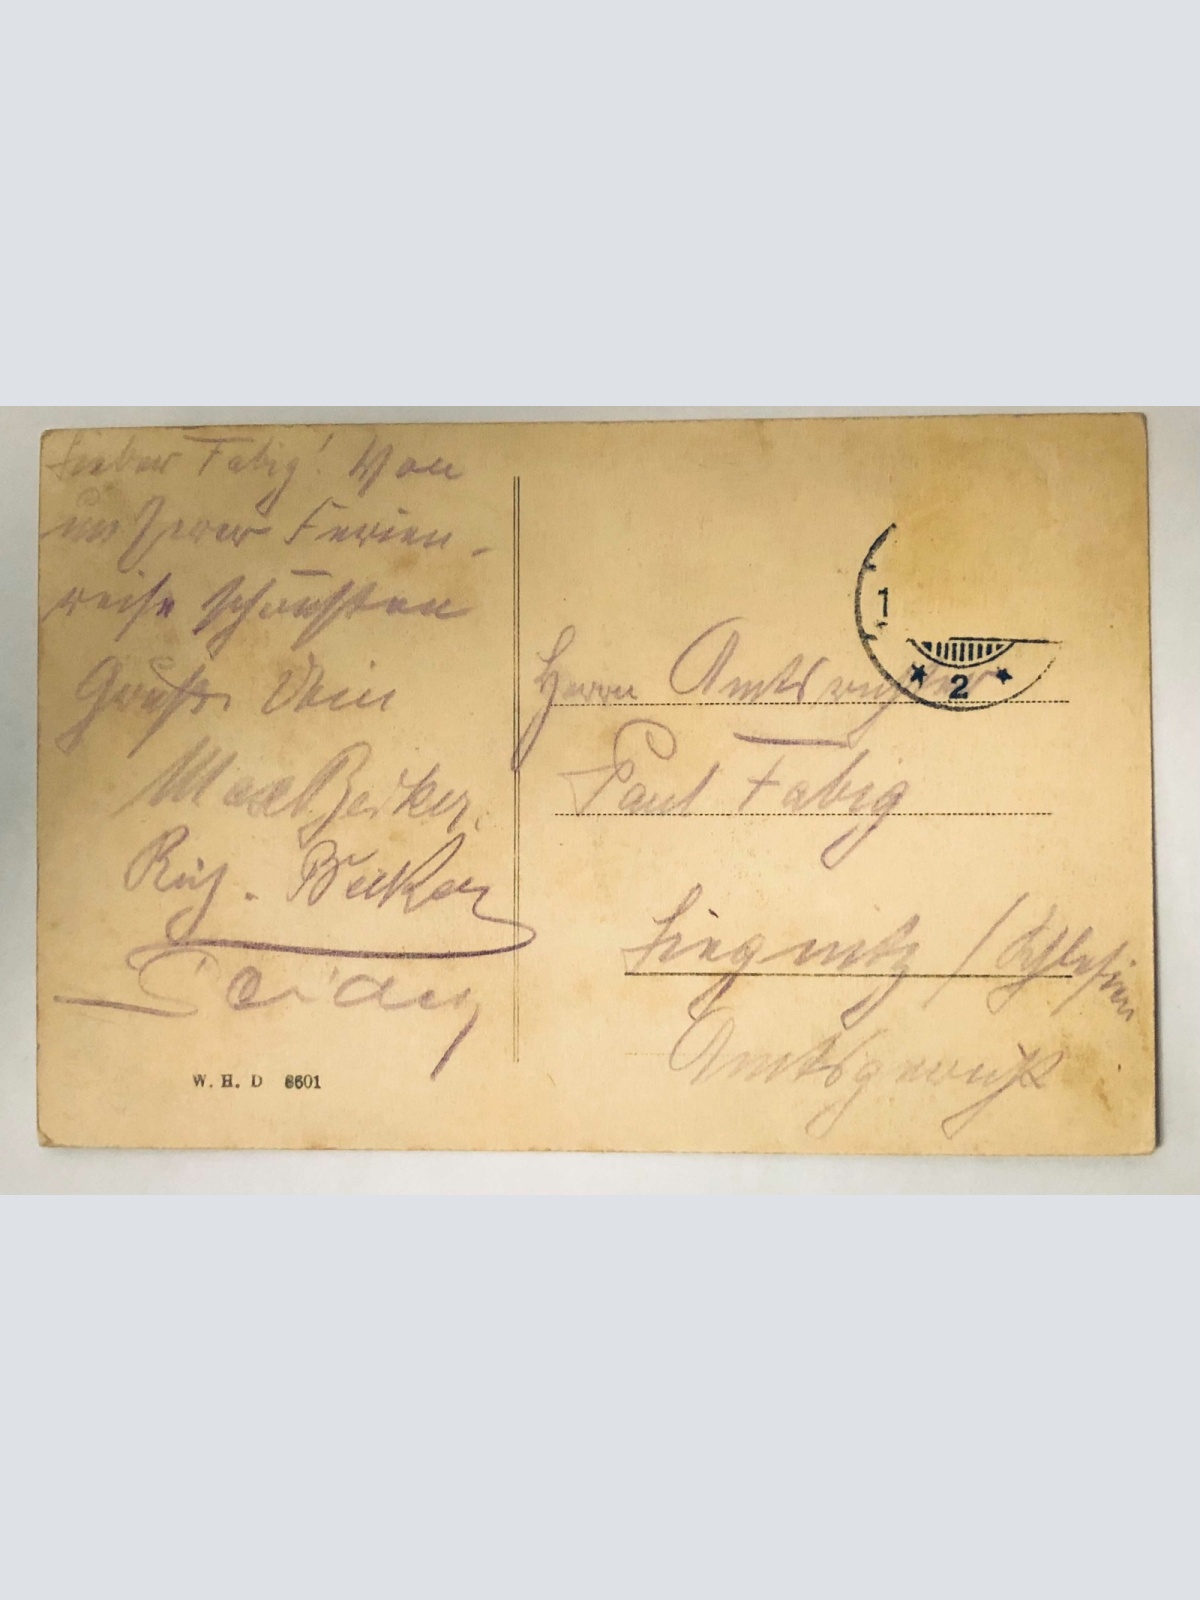 Lieber Fabig! Von
unserer Ferien-
reise schönsten
Gruß. Dein
Max Becker.
Becker
W. H. D 8601
1
2
Herrn Amtsrichter
Paul Fabig
Liegnitz / Schlesien
Amtsgericht